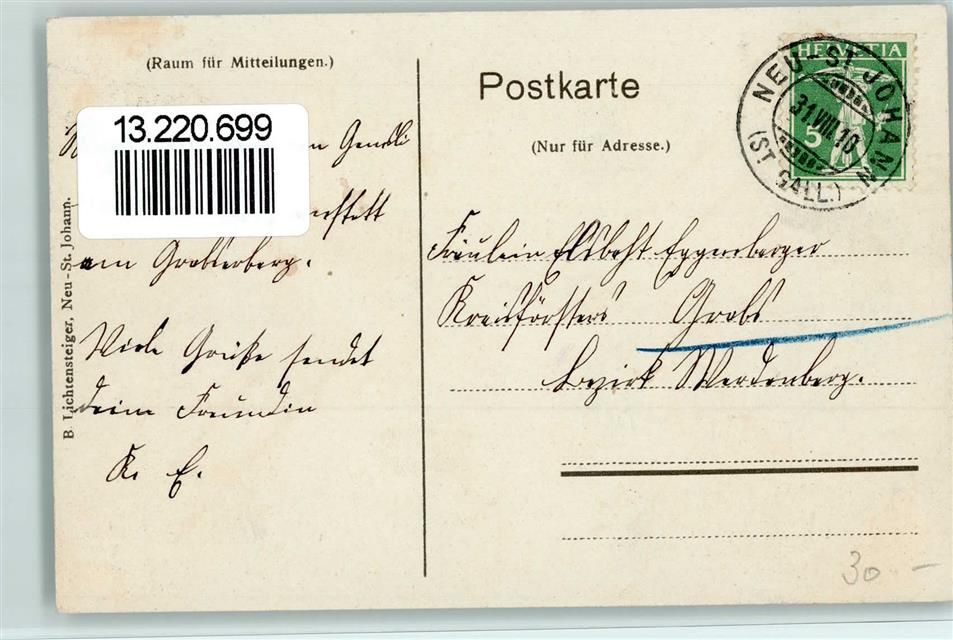 (Raum für Mitteilungen.)
13.220.699
am Grabserberg.
Viele Grüße sendet
deine Freundin
K. E.
B. Lichtensteiger, Neu-St. Johann.
Postkarte
(Nur für Adresse.)
HELVETIA
5
NEU-ST. JOHANN
31.VIII.10
(ST. GALL.)
Fräulein Elsbeht Eggenberger
Kreisförsters Grabs
Bezirk Werdenberg.
30 –